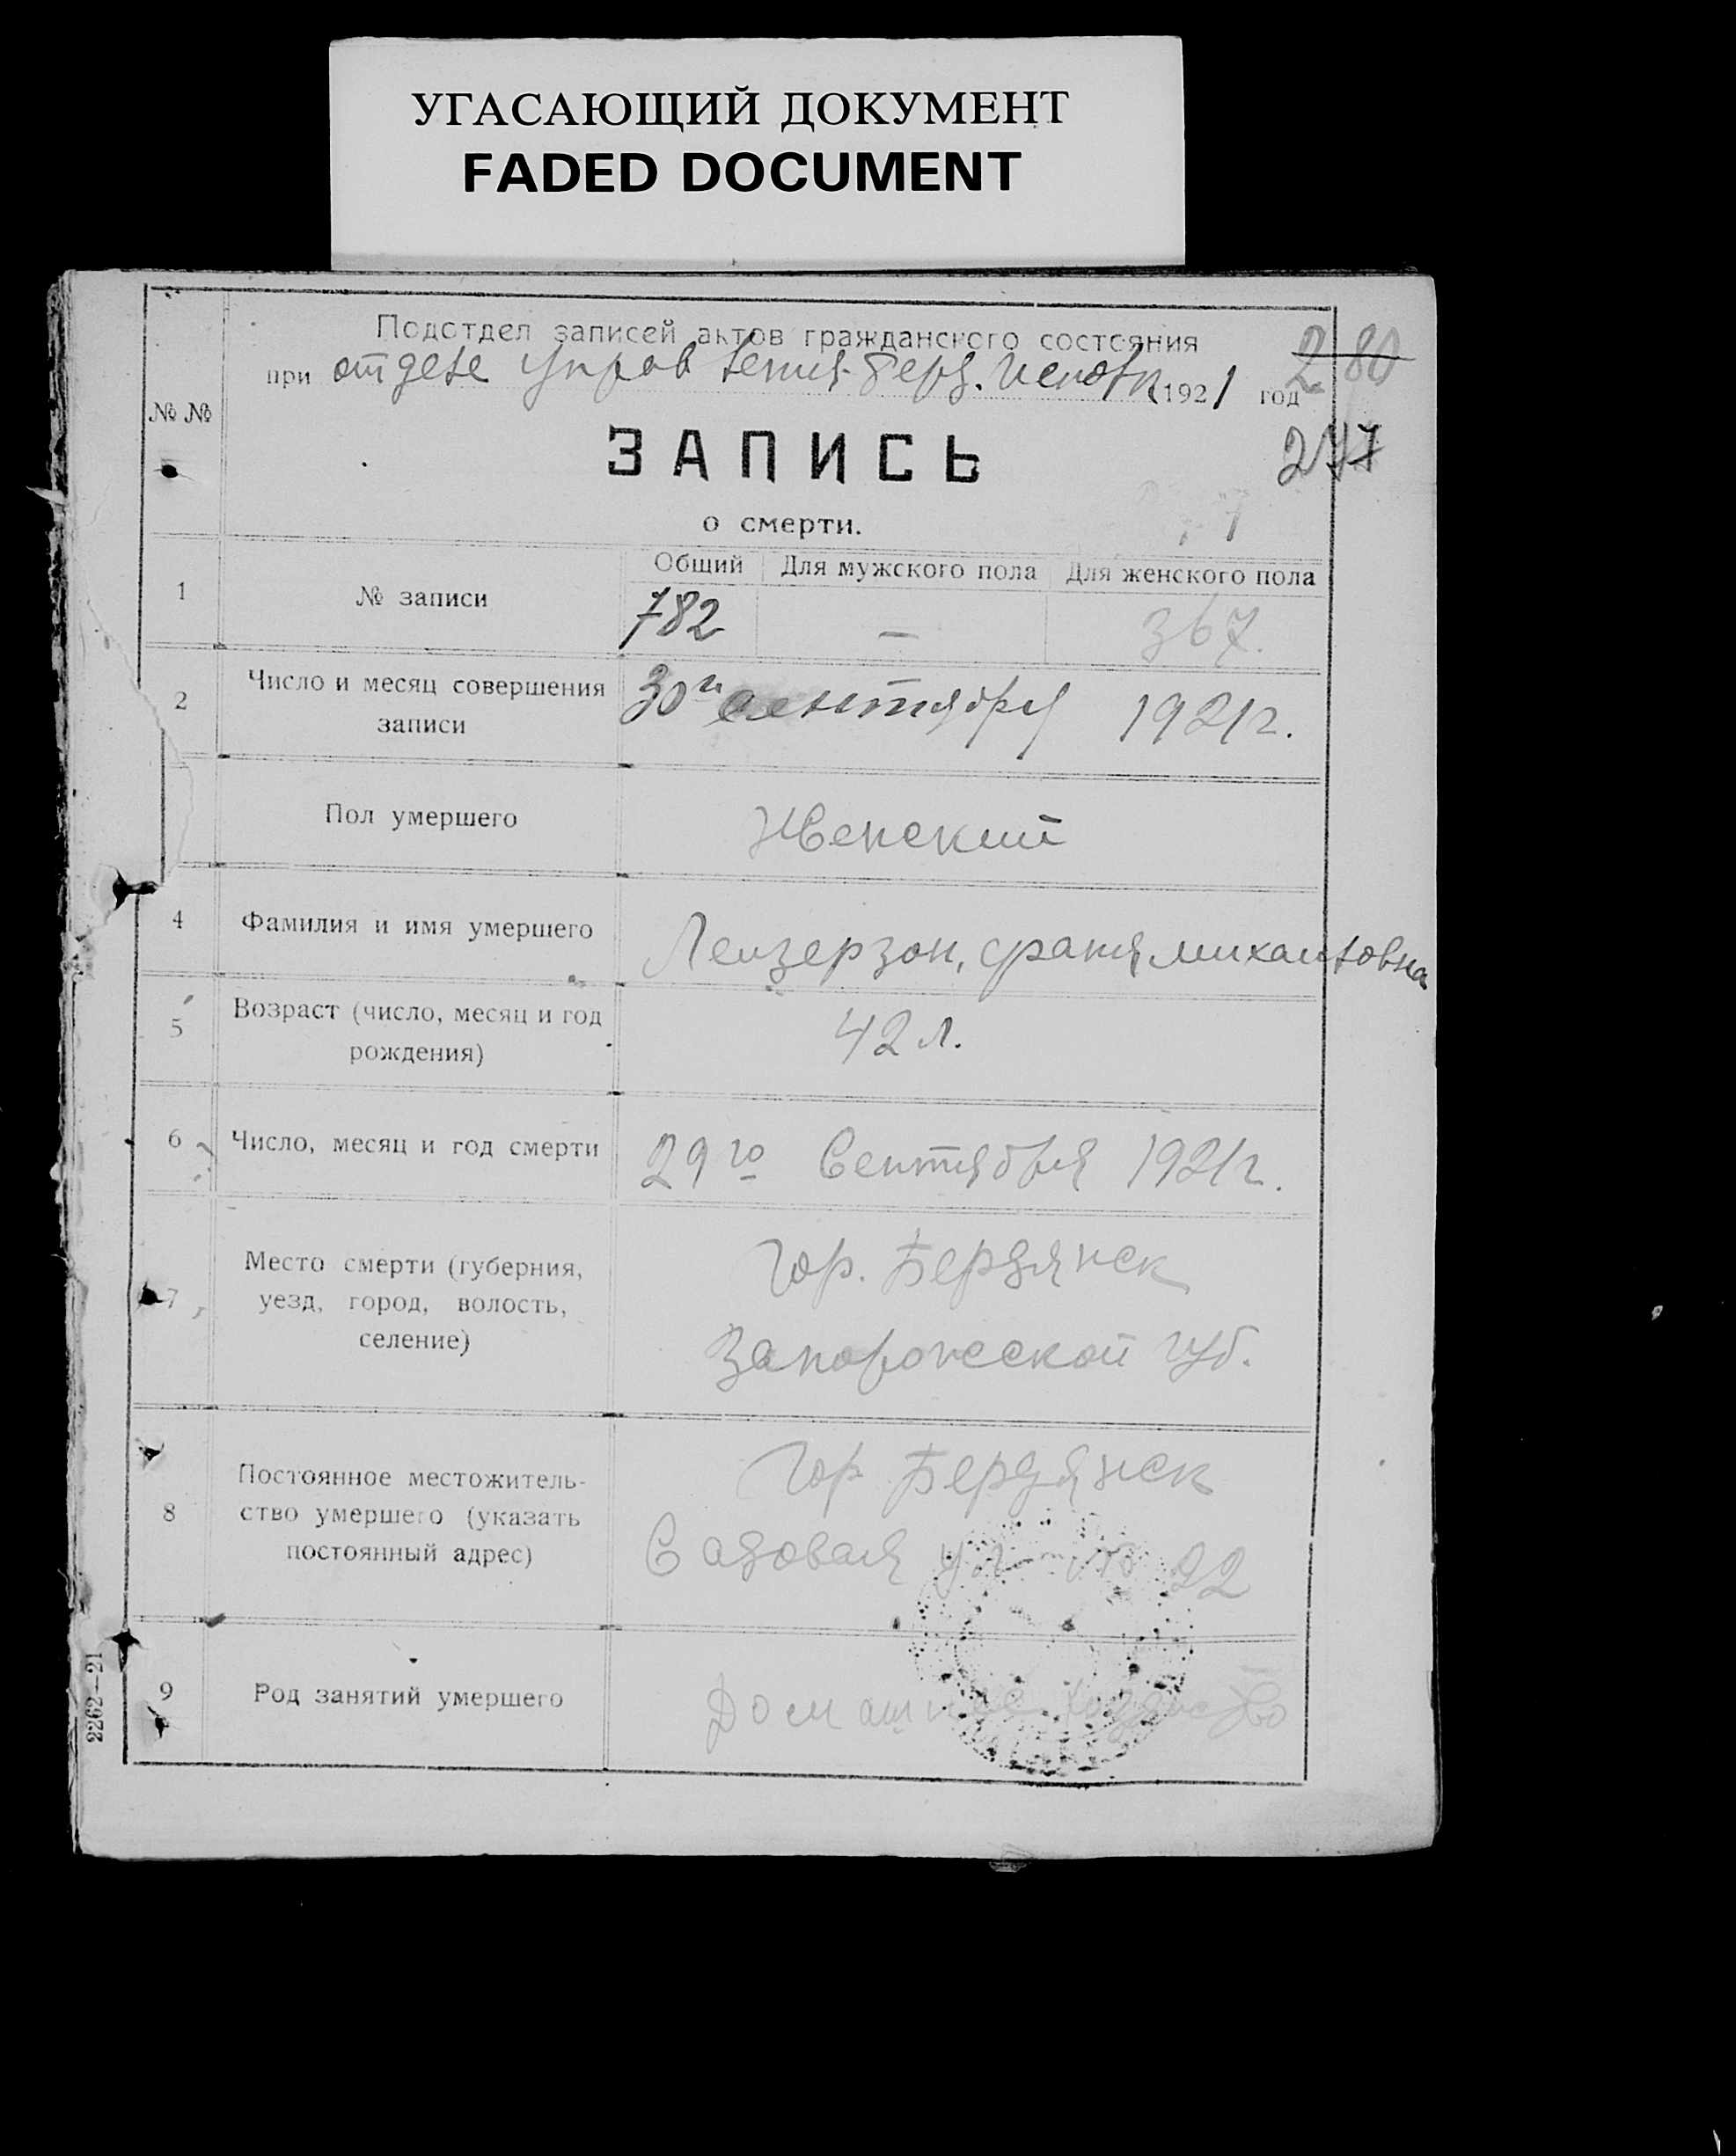 УГАСАЮЩИЙ ДОКУМЕНТ
FADED DOCUMENT
Подотдел записей актов гражданского состояния
280
при отделе управления Берд. Исполк 1921 год
№ №
277
ЗАПИСЬ
о смерти.
Общий Для мужского пола Для женского пола
1 № записи 782 — 367.
2 Число и месяц совершения записи 30го сентября 1921 г.
Пол умершего Женский
4 Фамилия и имя умершего Лейзерзон, Фаня Михайловна
5 Возраст (число, месяц и год рождения) 42 л.
6 Число, месяц и год смерти 29го Сентября 1921 г.
7 Место смерти (губерния, гор. Бердянск
уезд, город, волость,
селение) Запорожской губ.
8 Постоянное местожитель- гор. Бердянск
ство умершего (указать Садовая ул № 22
постоянный адрес)
9 Род занятий умершего Домашнее хозяйство
2262—21